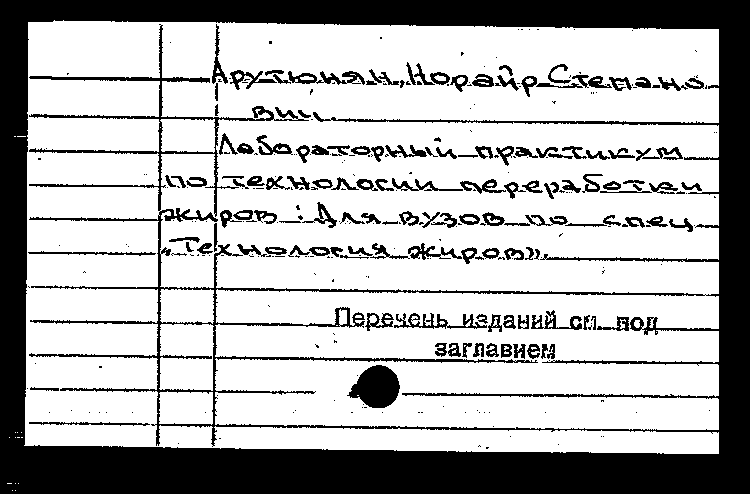 Арутюнян, Норайр Степано-
вич.
Лабораторный практикум
по технологии переработки
жиров : Для вузов по спец.
„Технология жиров».
Перечень изданий см. под
заглавием